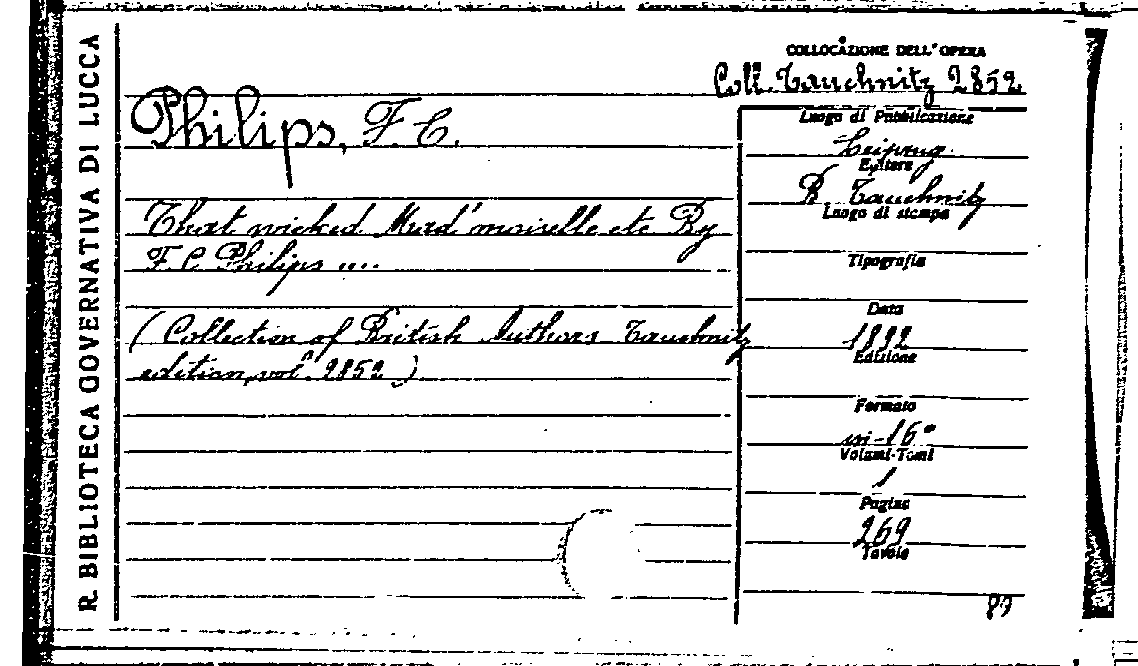 R. BIBLIOTECA GOVERNATIVA DI LUCCA
COLLOCAZIONE DELL'OPERA
Coll. Tauchnitz 2852
Philips, F. C.
That wicked Mad'moiselle etc By
F. C. Philips ....
( Collection of British Authors Tauchnitz
edition, vol. 2852 )
Luogo di Pubblicazione
Leipzig
Editore
B. Tauchnitz
Luogo di stampa
Tipografia
Data
1892
Edizione
Formato
in-16°
Volumi-Tomi
1
Pagine
269
Tavole